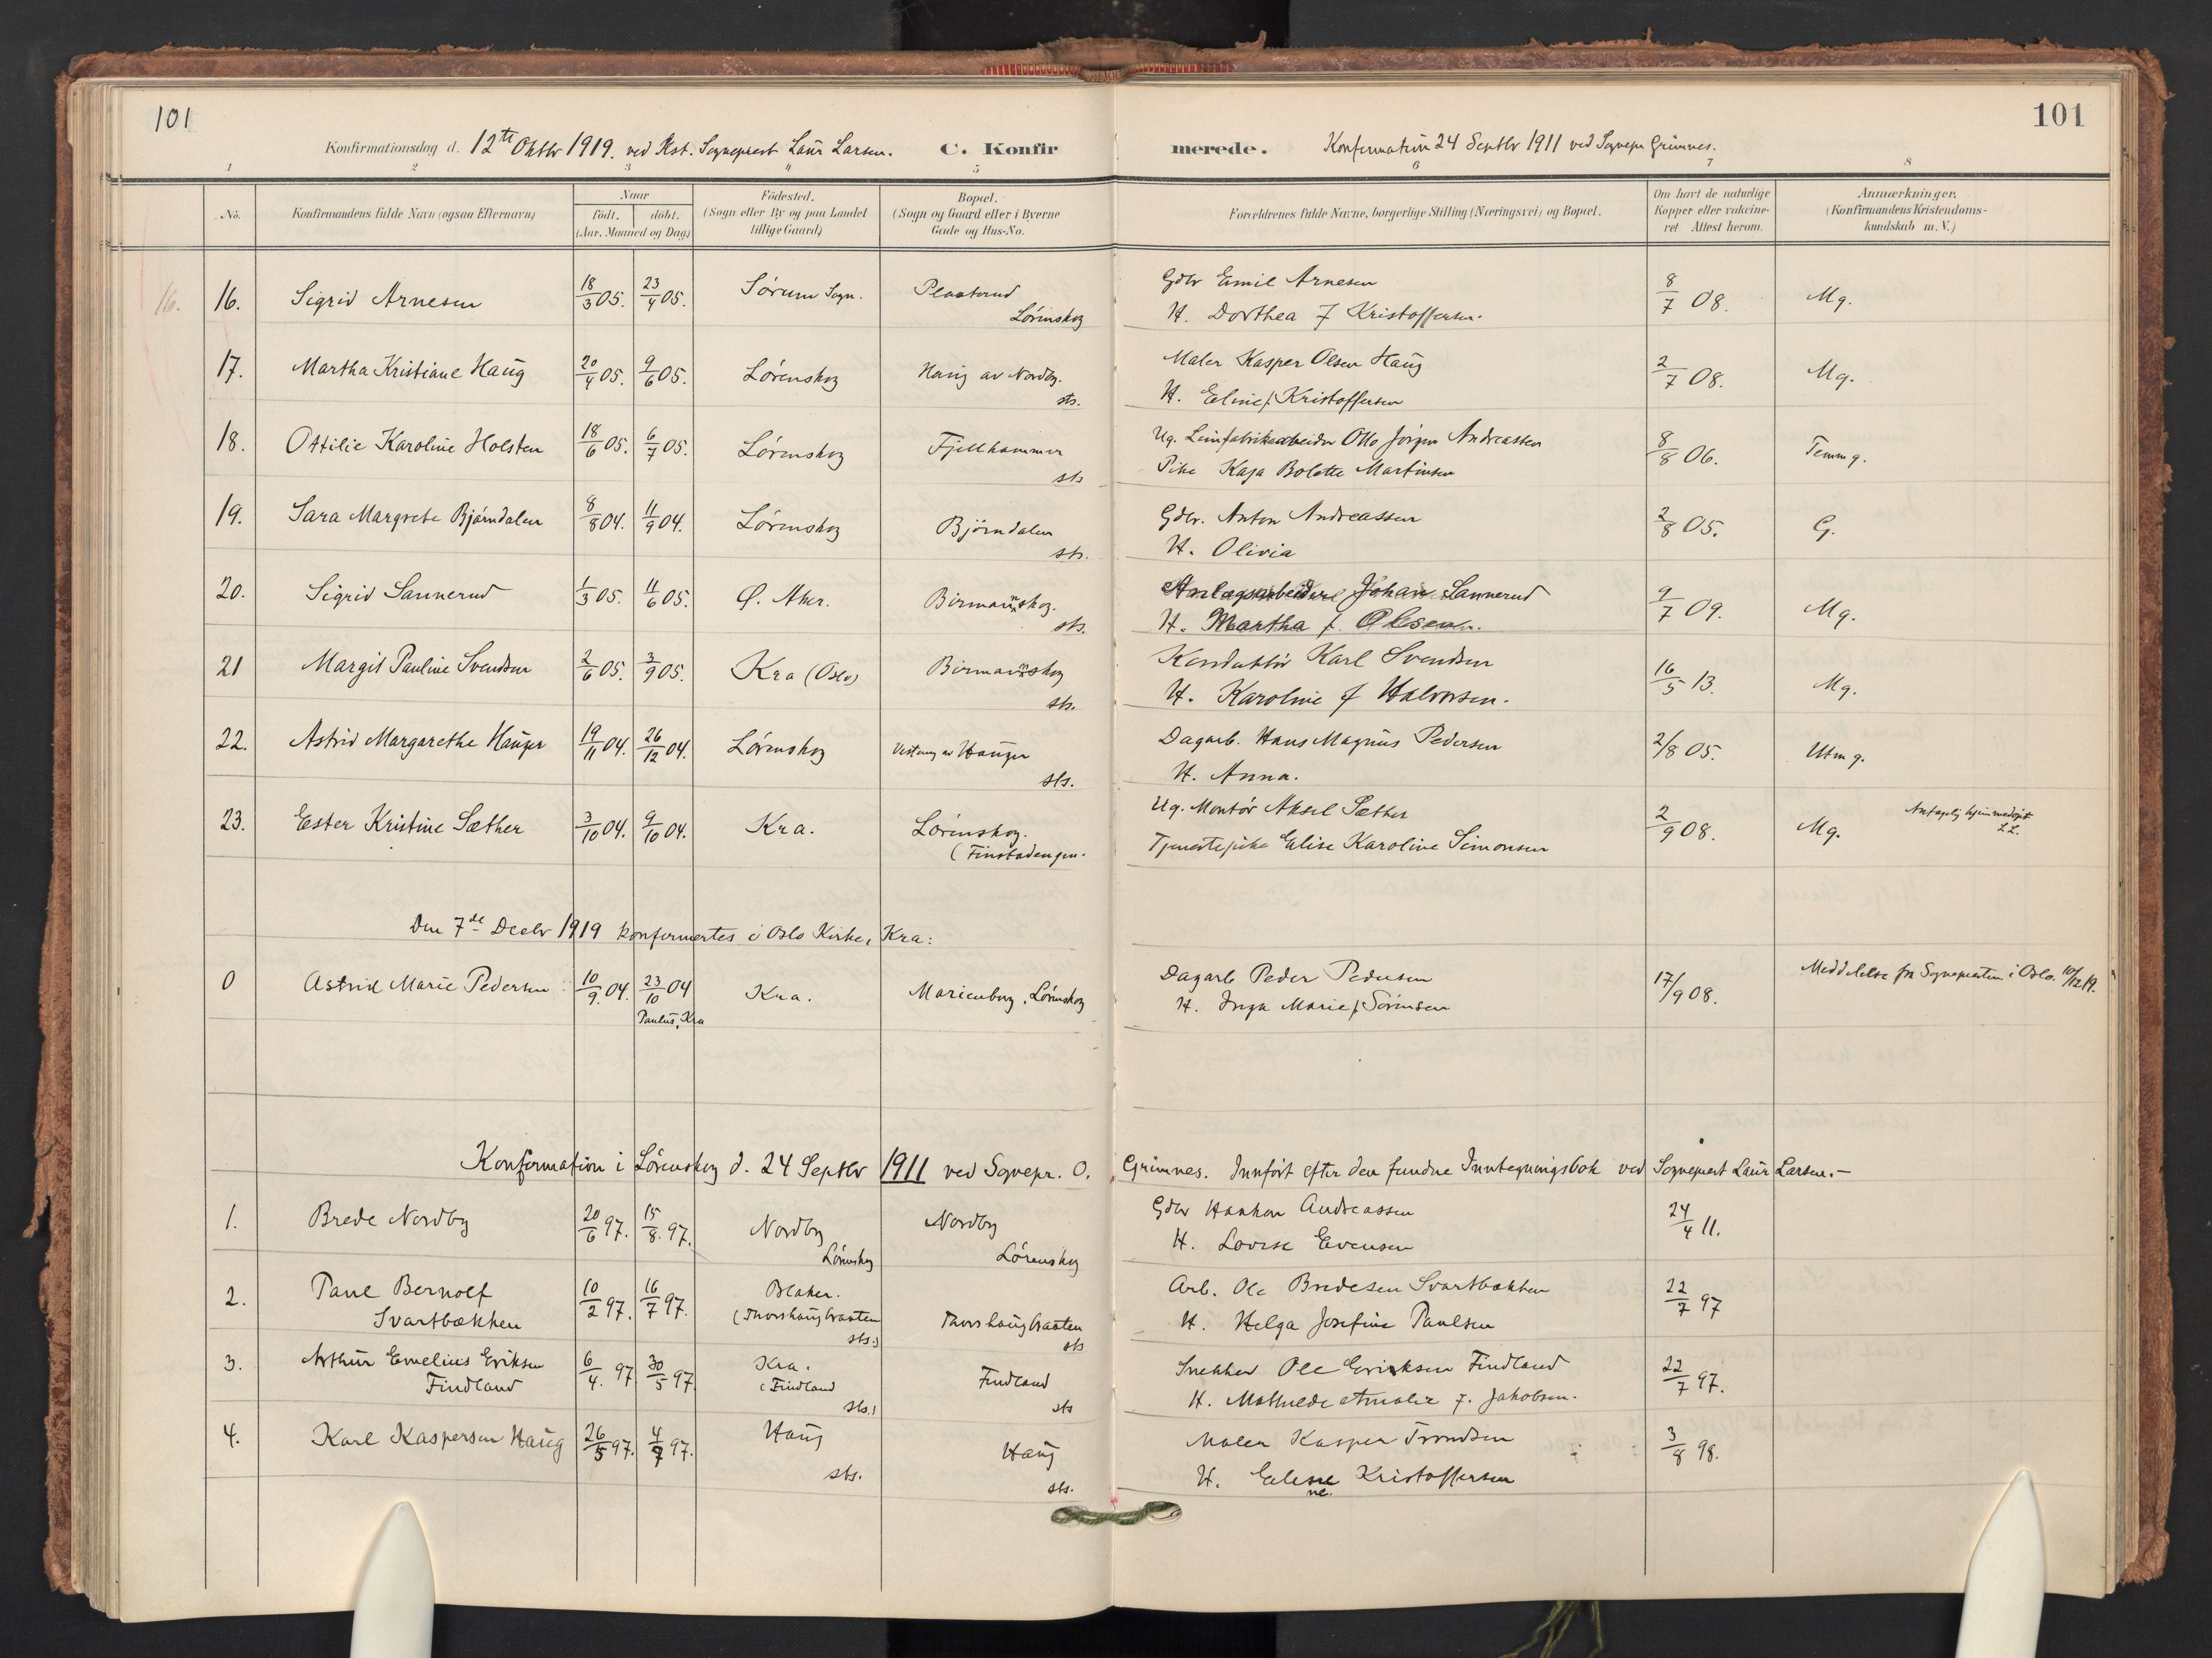 101
101
Konfirmationsdag d. 12te Oktbr 1919. ved Kst. Sogneprest Laur Larsen. C. Konfirmerede. Konfirmation 24 Septbr 1911 ved Sognepr Grimnes.
1 2 3 4 5 6 7 8
No. Konfirmandens fulde Navn (ogsaa Efternavn) Naar Födested. Bopæl. Forældrenes fulde Navne, borgerlige Stilling (Næringsvei) og Bopæl. Om havt de naturlige Anmærkninger,
födt. döbt. (Sogn eller By og paa Landet (Sogn og Gaard eller i Byerne Kopper eller vakcine- (Konfirmandens Kristendoms-
(Aar, Maaned og Dag) tillige Gaard) Gade og Hus-No. ret Attest herom. kundskab m. V.)
16. 16. Sigrid Arnesen 18/3 05. 23/4 05. Sørum Sogn. Gdbr Emil Arnesen 8/7 08. Mg.
Lørenskog H. Dorthea f Kristoffersen.
17. Martha Kristiane Haug 20/4 05. 9/6 05. Lørenskog Haug av Nordby. Maler Kasper Olsen Haug 2/7 08. Mg.
sts. H. Eline f. Kristoffersen
18. Ottilie Karoline Holsten 18/6 05. 6/7 05. Lørenskog Fjellhammer Ug. Limfabrikarbeider Otto Jörgen Andreassen 8/8 06. Temmg.
sts Pike Kaja Bolette Martinsen
19. Sara Margrete Bjørndalen 8/8 04. 11/9 04. Lørenskog Bjørndalen Gdbr. Anton Andreassen 2/8 05. G.
sts. H. Olivia
20. Sigrid Sannerud 1/3 05. 11/6 05. Ø. Aker. Birmannskog. Anlægsarbeider Johan Sannerud 9/7 09. Mg.
sts. H. Martha f. Olsen.
21 Margit Pauline Svendsen 2/6 05. 3/9 05. Kra (Oslo) Birmannskog Konduktør Karl Svendsen 16/5 13. Mg.
sts. H. Karoline f Halvorsen.
22. Astrid Margarethe Hauger 19/11 04. 26/12 04. Lørenskog Vesteng av Hauger Dagarb. Hans Magnus Pedersen 2/8 05. Utmg.
sts. H. Anna.
23. Ester Kristine Sæther 3/10 04. 9/10 04. Kra. Lørenskog. Ug. Montør Aksel Sæther 2/9 08. Mg. Antagelig hjemmedöpt
(Finstadengen. Tjenestepike Elise Karoline Simonsen L.L.
Den 7de Decbr 1919 konfirmertes i Oslo Kirke, Kra:
0 Astrid Marie Pedersen 10/9 04. 23/10 04 Kra. Marienborg, Lørenskog Dagarb Peder Pedersen 17/9 08. Meddelelse fra Sognepresten i Oslo. 10/12 19.
Paulus, Kra H. Inga Marie f Sörensen
Konfirmation i Lørenskog d. 24 Septbr 1911 ved Sognepr. O. Grimnes. Innført efter den fundne Inntegningsbok ved Sogneprest Laur Larsen.—
1. Brede Nordby 20/6 97. 15/8. 97. Nordby Nordby Gdbr Haakon Andreassen 24/4 11.
Lørenskog Lørenskog H. Lovise Evensen
2. Paul Bernolf 10/2 97. 16/7 97. Blaker. Arb. Ole Bredesen Svartbækken 22/7 97
Svartbækken (Thorshaugbraaten Thorshaugbraaten H. Helga Josefine Paulsen
sts.) sts
3. Arthur Emelius Eriksen 6/4. 97 30/5 97. Kra. Findland Snekker Ole Eriksen Findland 22/7 97.
Findland (Findland sts H. Mathilde Amalie f. Jakobsen.
sts.)
4. Karl Kaspersen Haug 26/5 97. 4/7 97. Haug Haug Maler Kasper Trondsen 3/8 98.
sts. sts. H. Elene Kristoffersen
ne.